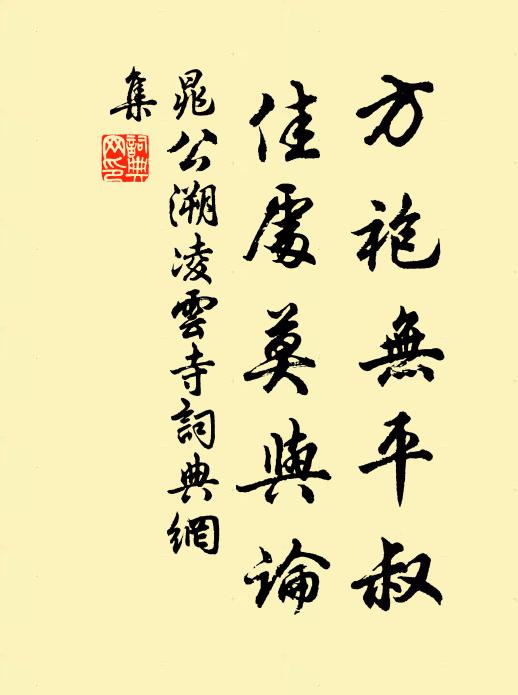 方袍無平叔
佳處莫與論
晁公溯凌雲寺詞典網
集
詞典網印